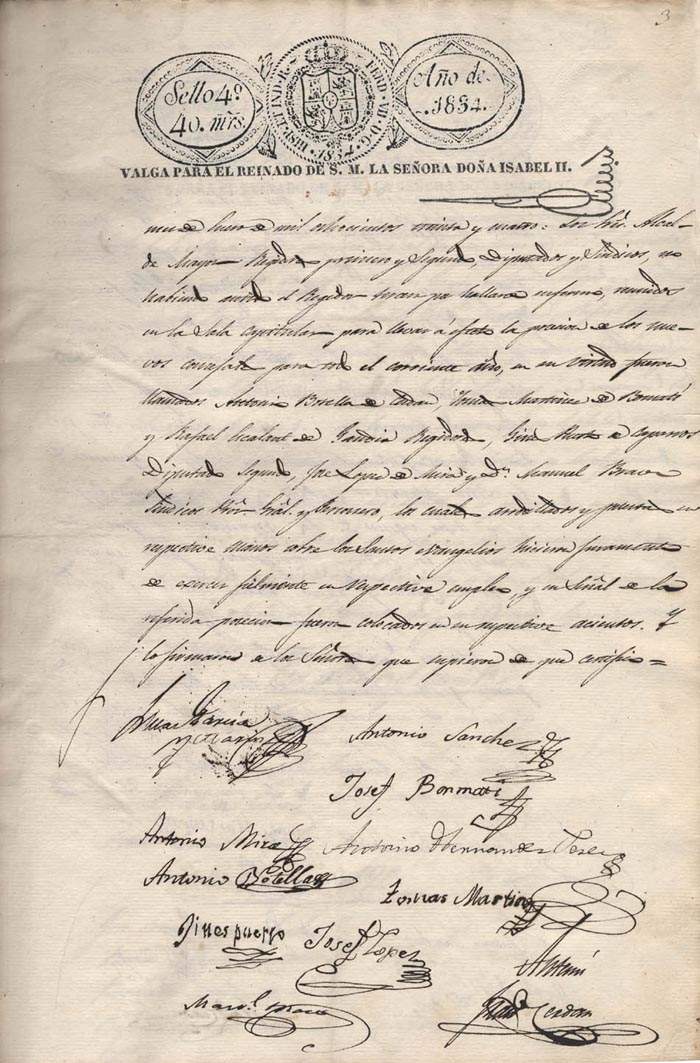 3
Sello 4º
40. mrs.
HISP. ET IND. R. FERD. VII. D. G.
1834
Año de
1834.
VALGA PARA EL REINADO DE S. M. LA SEÑORA DOÑA ISABEL II.
de mil ochocientos treinta y cuatro: Los Alcal-
de Mayor Regidor primero y segundo, Diputados y Sindicos, no
habiendo el Regidor por hallarse enfermo, reunidos
en la Sala Capitular para llevar á efecto la posecion de los nue-
vos para todo el corriente año, en su virtud fueron
llamados Antonio Botella de Cerdan, Martinez de Bonmatí
y Rafael de Regidores, Gines Puerto
Diputado Segundo, Jose Lopez de Mira y Dn. Manuel Bravo
Sindicos y Personero, los cuales arrodillados y puestas sus
respectivas manos sobre los Santos evangelios hicieron juramento
de exercer fielmente su respectivo empleo, y en señal de la
referida posecion fueron colocados en su respectivos acientos. Y
lo firmaron de los Señores que supieron de que certifico =
Garcia
y
Antonio Sanchez
Josef Bonmati
Antonio Mira
Antonio Hernandez Perez
Antonio Botella
Tomas Martinez
Gines puerto
Josef Lopez
Manl. Bravo
Cerdan